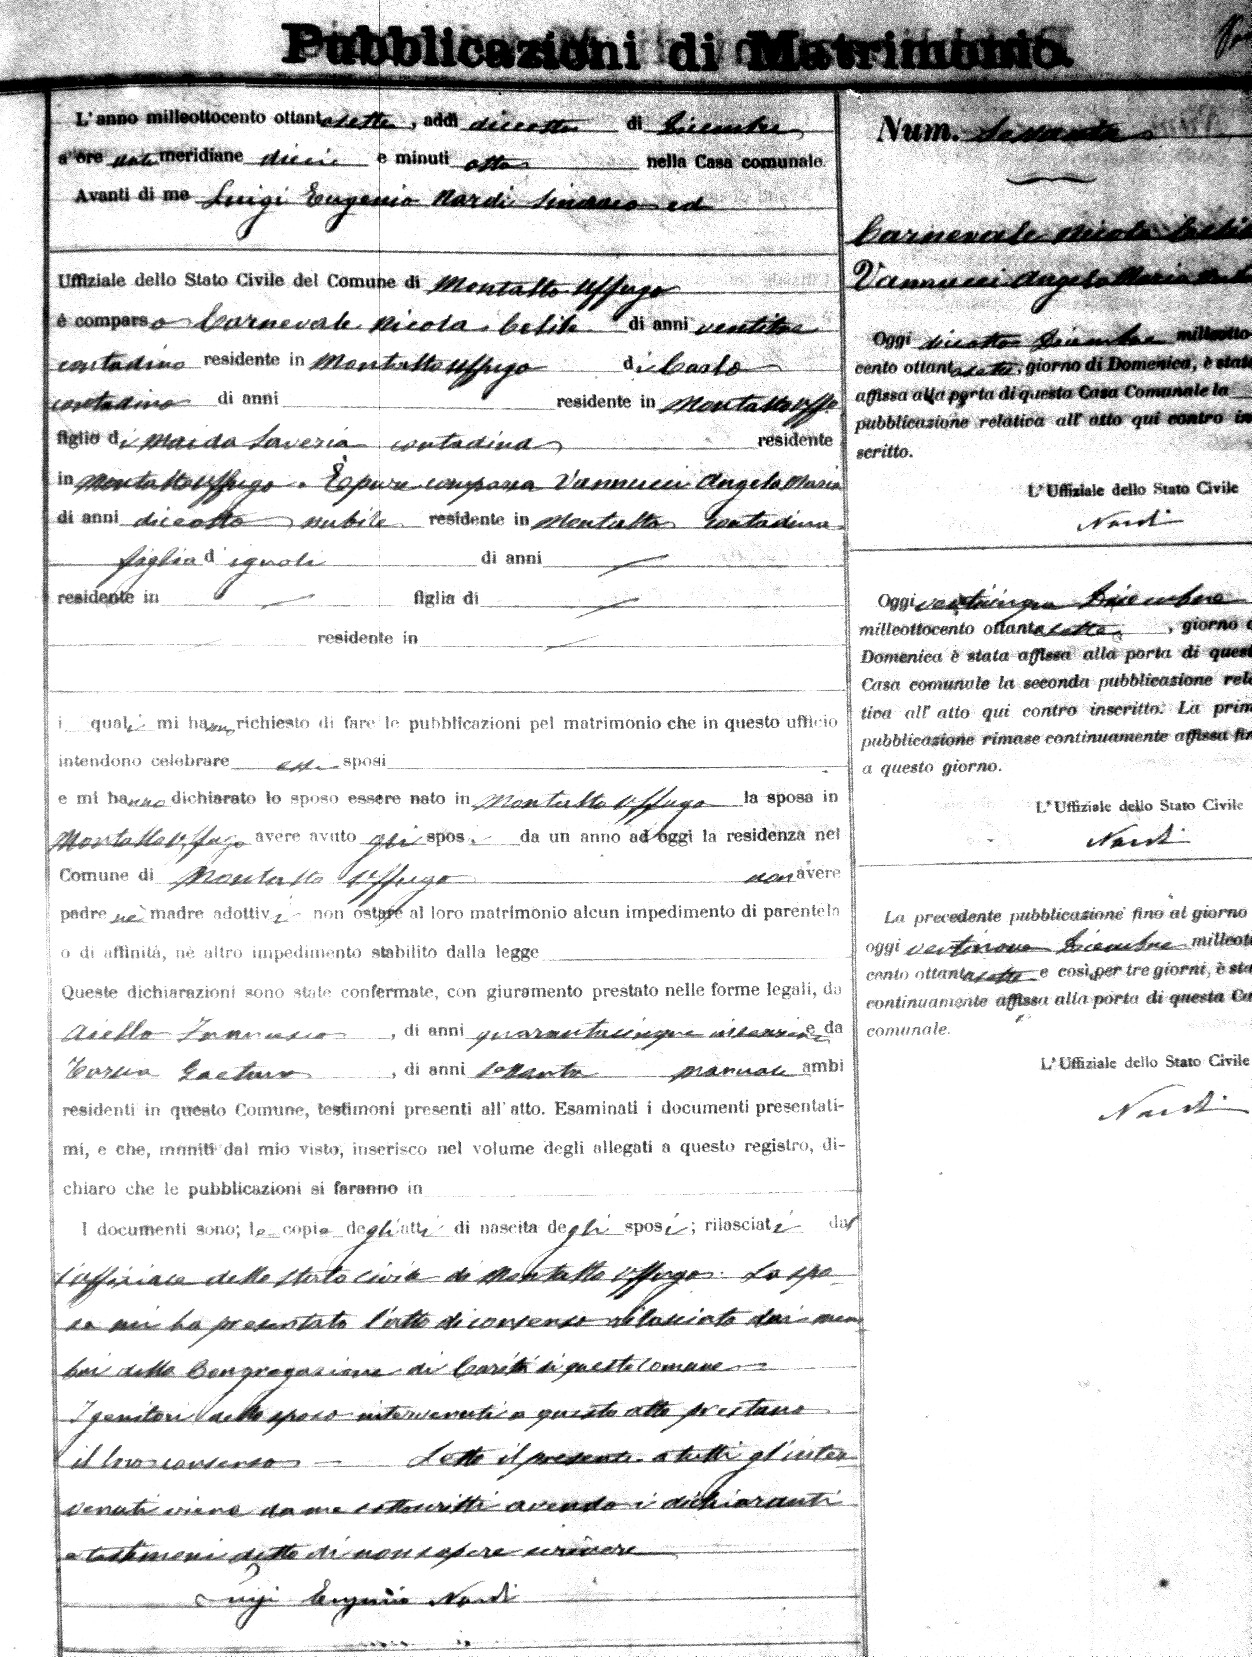 Pubblicazioni di Matrimonio.
L'anno milleottocento ottantasette, addì diciotto di Dicembre
a ore anti meridiane dieci e minuti otto nella Casa comunale.
Avanti di me Luigi Eugenio Nardi Sindaco ed
Uffiziale dello Stato Civile del Comune di Montalto Uffugo
é comparso Carnevale Nicola celibe di anni ventitre
contadino residente in Montalto Uffugo di Carlo
contadino di anni residente in Montalto Uffo
figlio di Maida Saveria contadina residente
in Montalto Uffugo. È pure comparsa Vannucci Angela Maria
di anni diciotto nubile residente in Montalto contadina
figlia d'ignoti di anni
residente in figlia di
residente in
i quali mi hanno richiesto di fare le pubblicazioni pel matrimonio che in questo ufficio
intendono celebrare essi sposi
e mi hanno dichiarato lo sposo essere nato in Montalto Uffugo la sposa in
Montalto Uffugo avere avuto gli sposi da un anno ad oggi la residenza nel
Comune di Montalto Uffugo non avere
padre nè madre adottivi non ostare al loro matrimonio alcun impedimento di parentela
o di affinità, nè altro impedimento stabilito dalla legge
Queste dichiarazioni sono state confermate, con giuramento prestato nelle forme legali, da
Aiello Francesco, di anni quarantacinque e da
Gaetano, di anni sessanta manuale ambi
residenti in questo Comune, testimoni presenti all'atto. Esaminati i documenti presentati-
mi, e che, muniti dal mio visto, inserisco nel volume degli allegati a questo registro, di-
chiaro che le pubblicazioni si faranno in
I documenti sono; le copie degli atti di nascita degli sposi; rilasciati dal
l'uffiziale dello stato civile di Montalto Uffugo. La spo-
sa mi ha presentato l'atto di consenso rilasciato dai mem
bri della Congregazione di Carità di questo comune
I genitori dello sposo intervenuti a questo atto prestano
il loro consenso Letto il presente a tutti gl'inter
venuti viene da me sottoscritti avendo i dichiaranti
e testimoni detto di non sapere scrivere
Luigi Eugenio Nardi
Num. Sessanta
Carnevale Nicola Celibe
Vannucci Angela Maria
Oggi diciotto Dicembre milleotto-
cento ottantasette, giorno di Domenica, è stata
affissa alla porta di questa Casa Comunale la
pubblicazione relativa all'atto qui contro in
scritto.
L'Uffiziale dello Stato Civile
Nardi
Oggi venticinque Dicembre
milleottocento ottantasette, giorno d
Domenica è stata affissa alla porta di quest
Casa comunale la seconda pubblicazione rela
tiva all'atto qui contro inscritto. La prim
pubblicazione rimase continuamente affissa fin
a questo giorno.
L'Uffiziale dello Stato Civile
Nardi
La precedente pubblicazione fino al giorno
oggi ventinove Dicembre milleott
cento ottantasette e così per tre giorni, è sta
continuamente affissa alla porta di questa Ca
comunale.
L'Uffiziale dello Stato Civile
Nardi